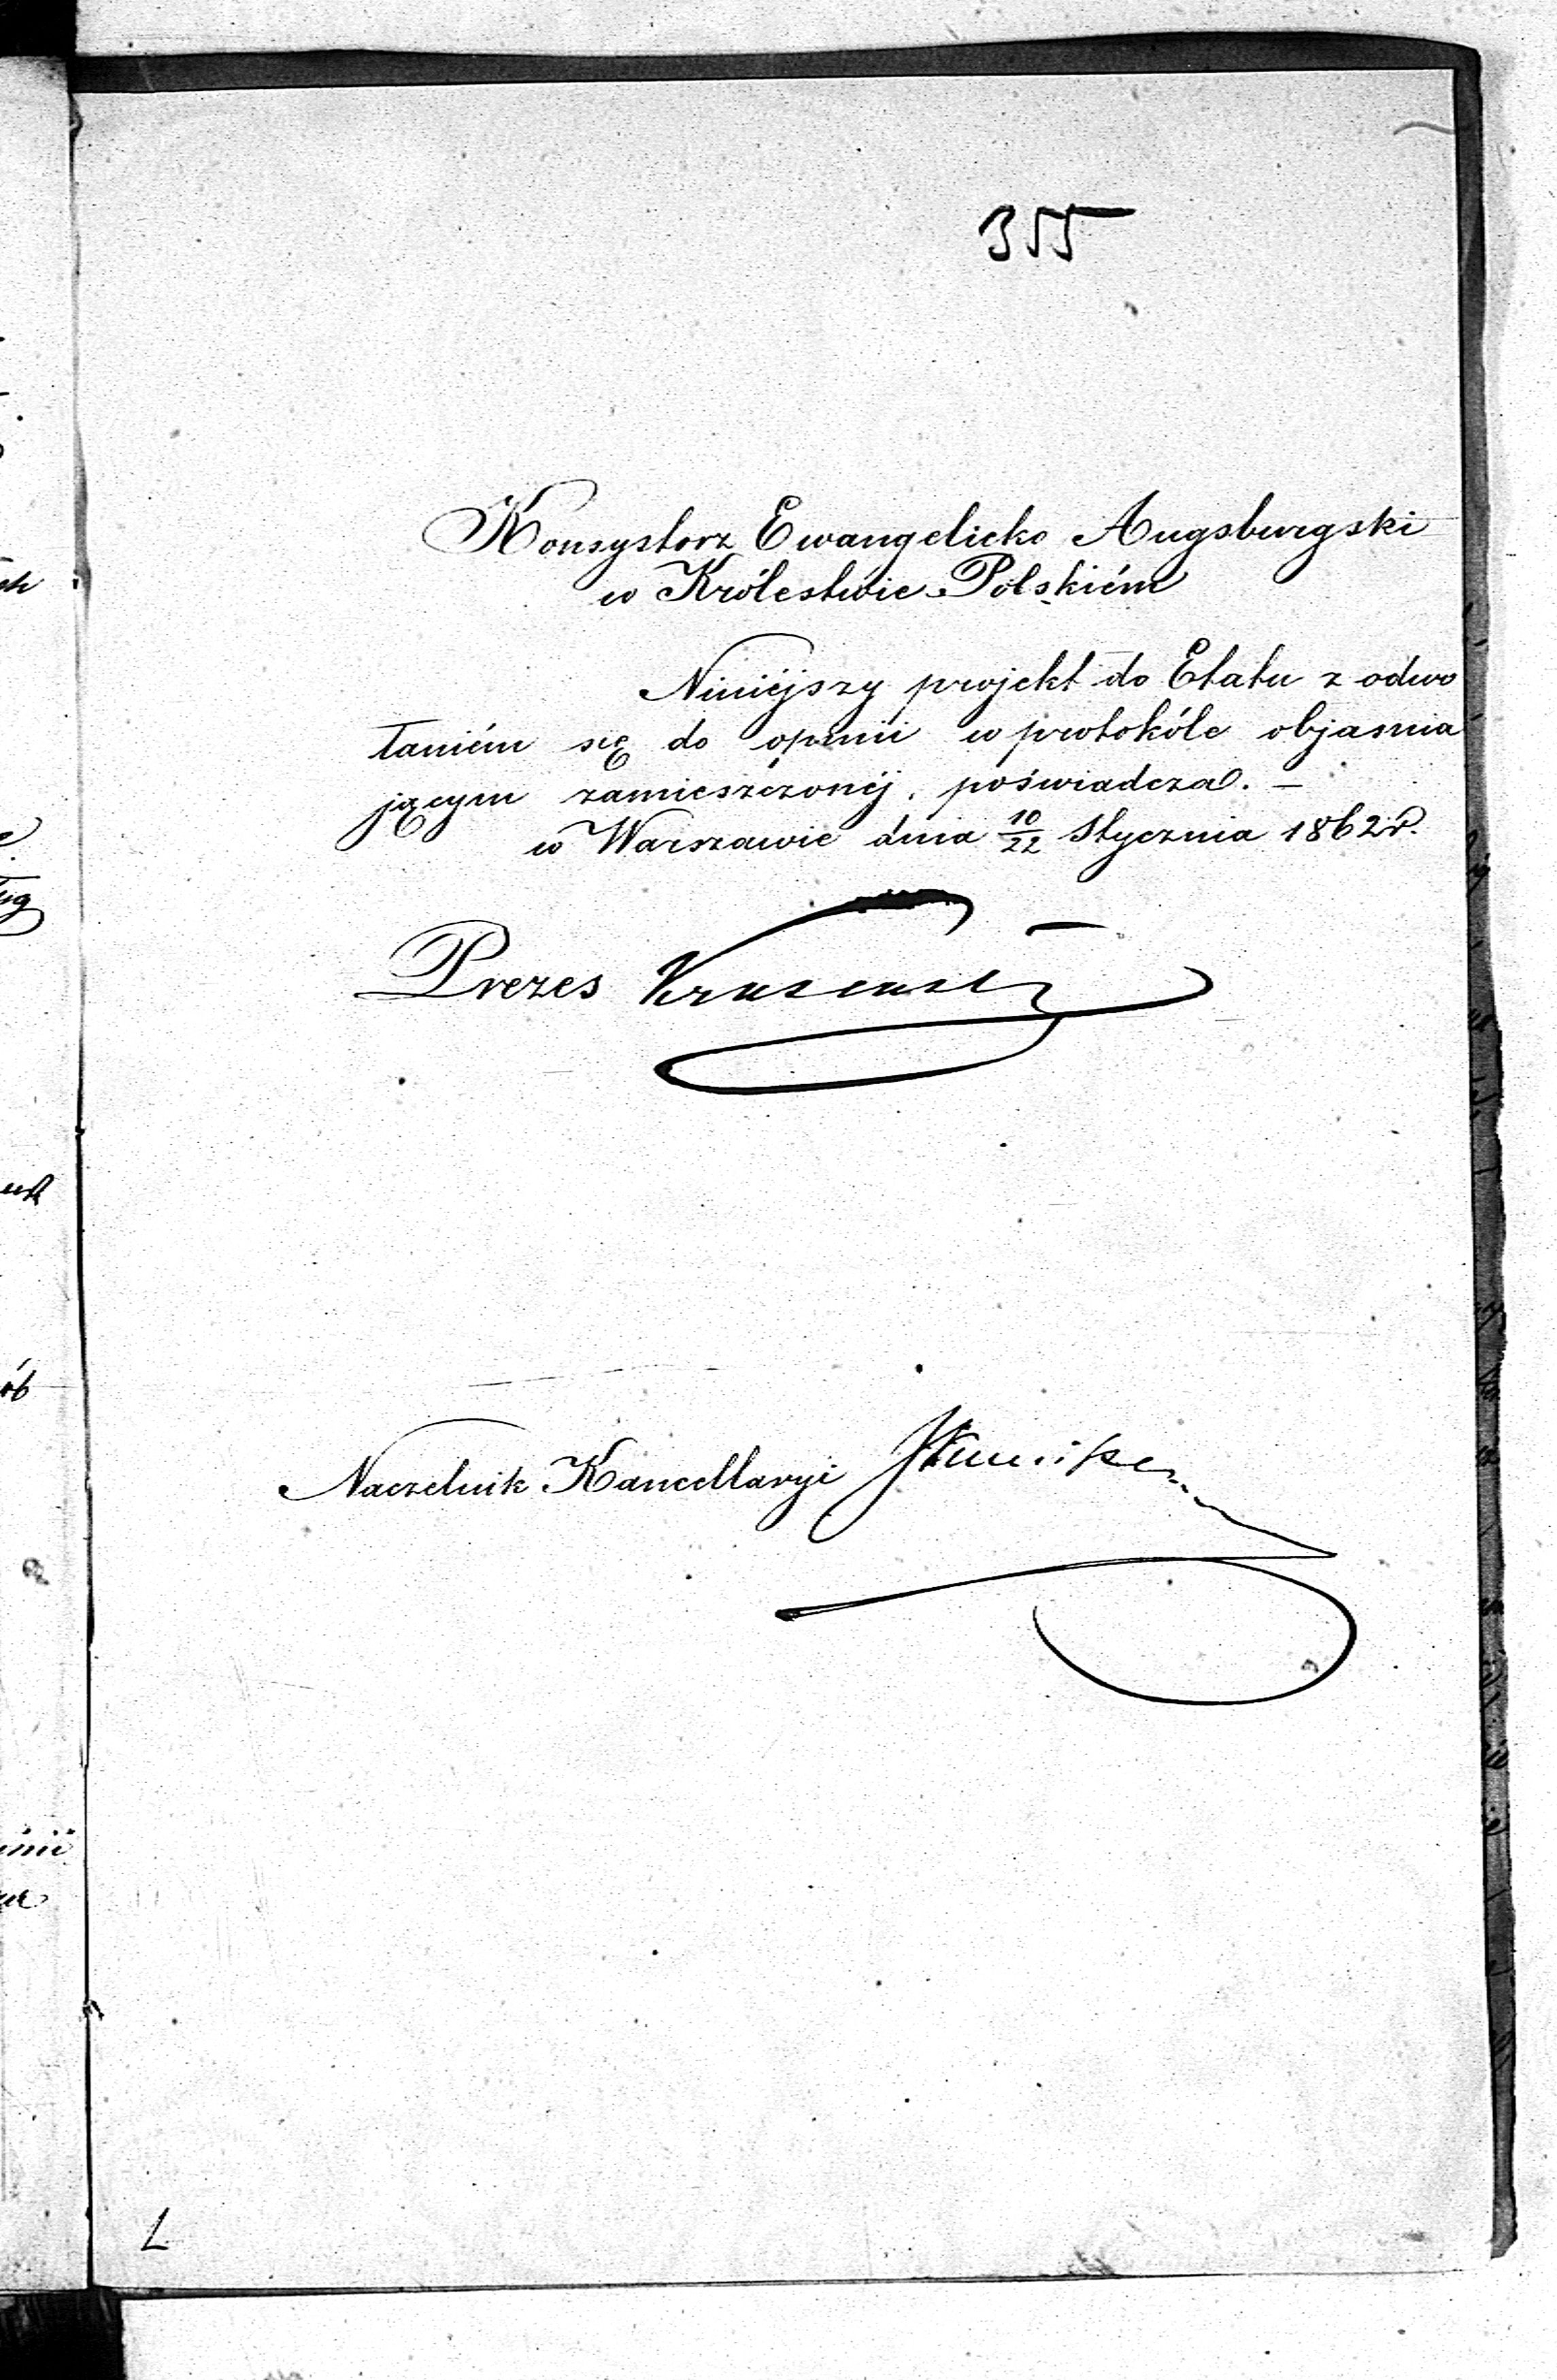 355
Konsystorz Ewangelicko Augsburgski
w Królestwie Polskiém
Niniejszy projekt do Etatu z odwo
łaniém się do opinii w protokóle objaśnia
jącym zamieszczonéj, poświadcza. —
w Warszawie dnia 10/22 Stycznia 1862 r.
Prezes
Naczelnik Kancellaryi